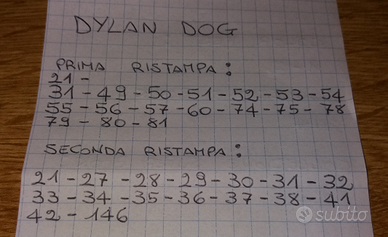 DYLAN DOG
PRIMA RISTAMPA:
21-
31-49-50-51-52-53-54
55-56-57-60-74-75-78
79-80-81
SECONDA RISTAMPA:
21-27-28-29-30-31-32
33-34-35-36-37-38-41
42-146
subito